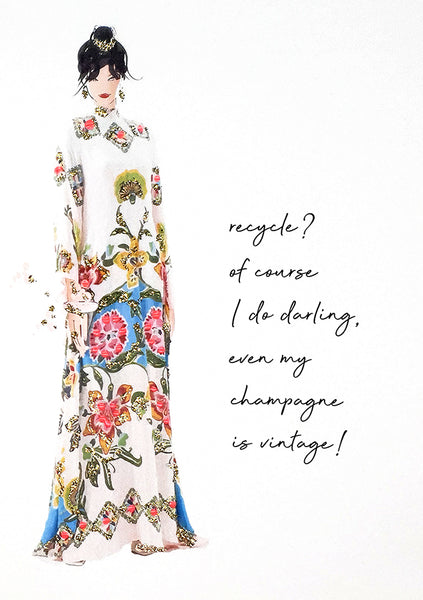 recycle?
of course
I do darling,
even my
champagne
is vintage!